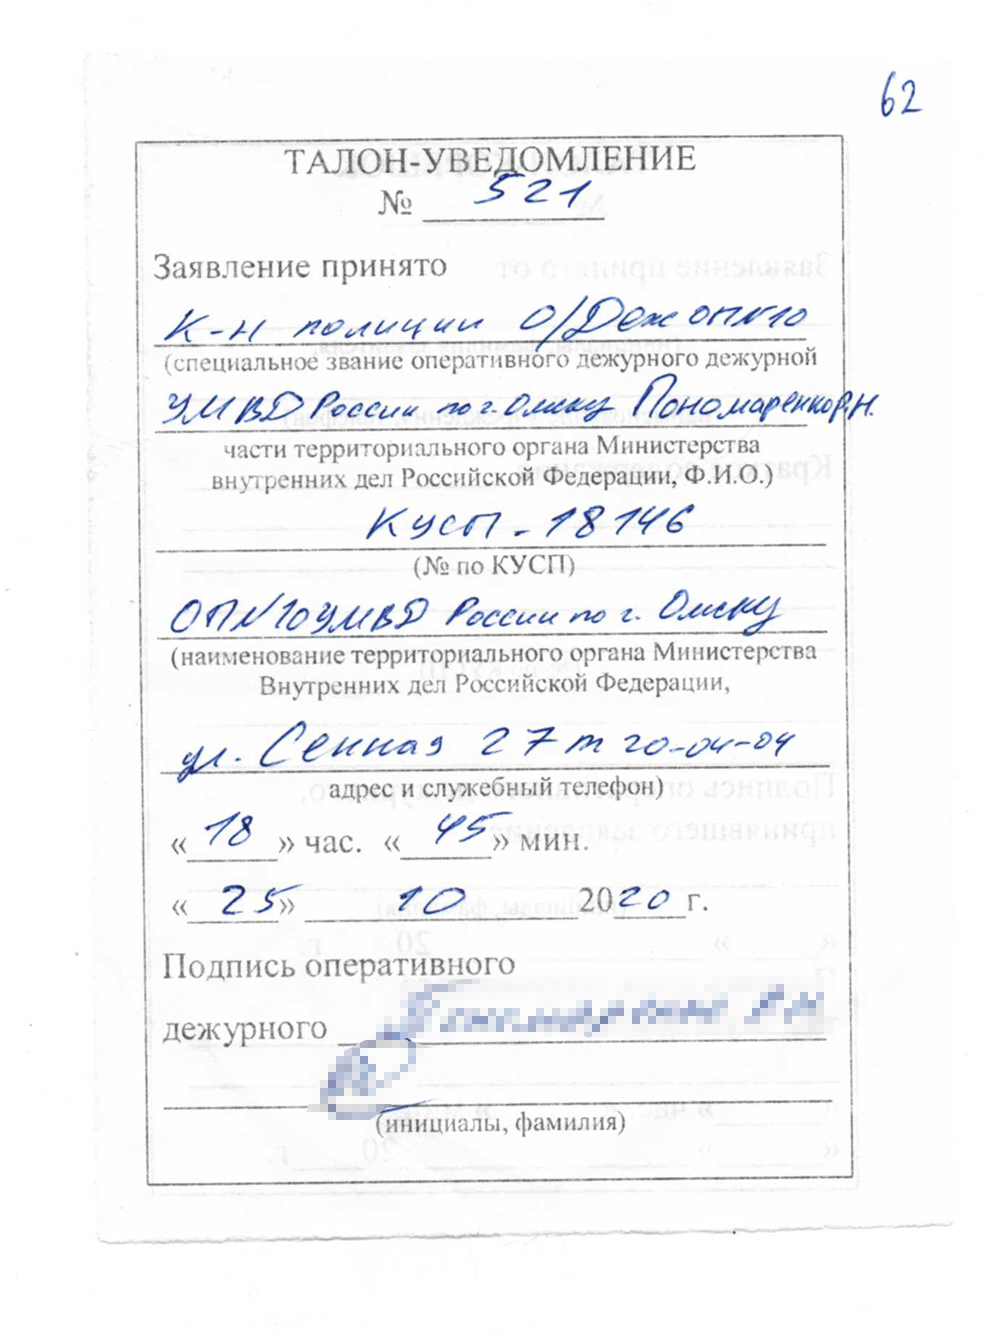 62
ТАЛОН-УВЕДОМЛЕНИЕ
№ 521
Заявление принято
К-н полиции О/Деж ОП№10
(специальное звание оперативного дежурного дежурной
УМВД России по г. Омску Пономаренко Р.Н.
части территориального органа Министерства
внутренних дел Российской Федерации, Ф.И.О.)
КУСП - 18146
(№ по КУСП)
ОП№10 УМВД России по г. Омску
(наименование территориального органа Министерства
Внутренних дел Российской Федерации,
ул. Сенная 27 т 20-04-04
адрес и служебный телефон)
« 18 » час. « 45 » мин.
« 25 » 10 2020 г.
Подпись оперативного
дежурного
(инициалы, фамилия)